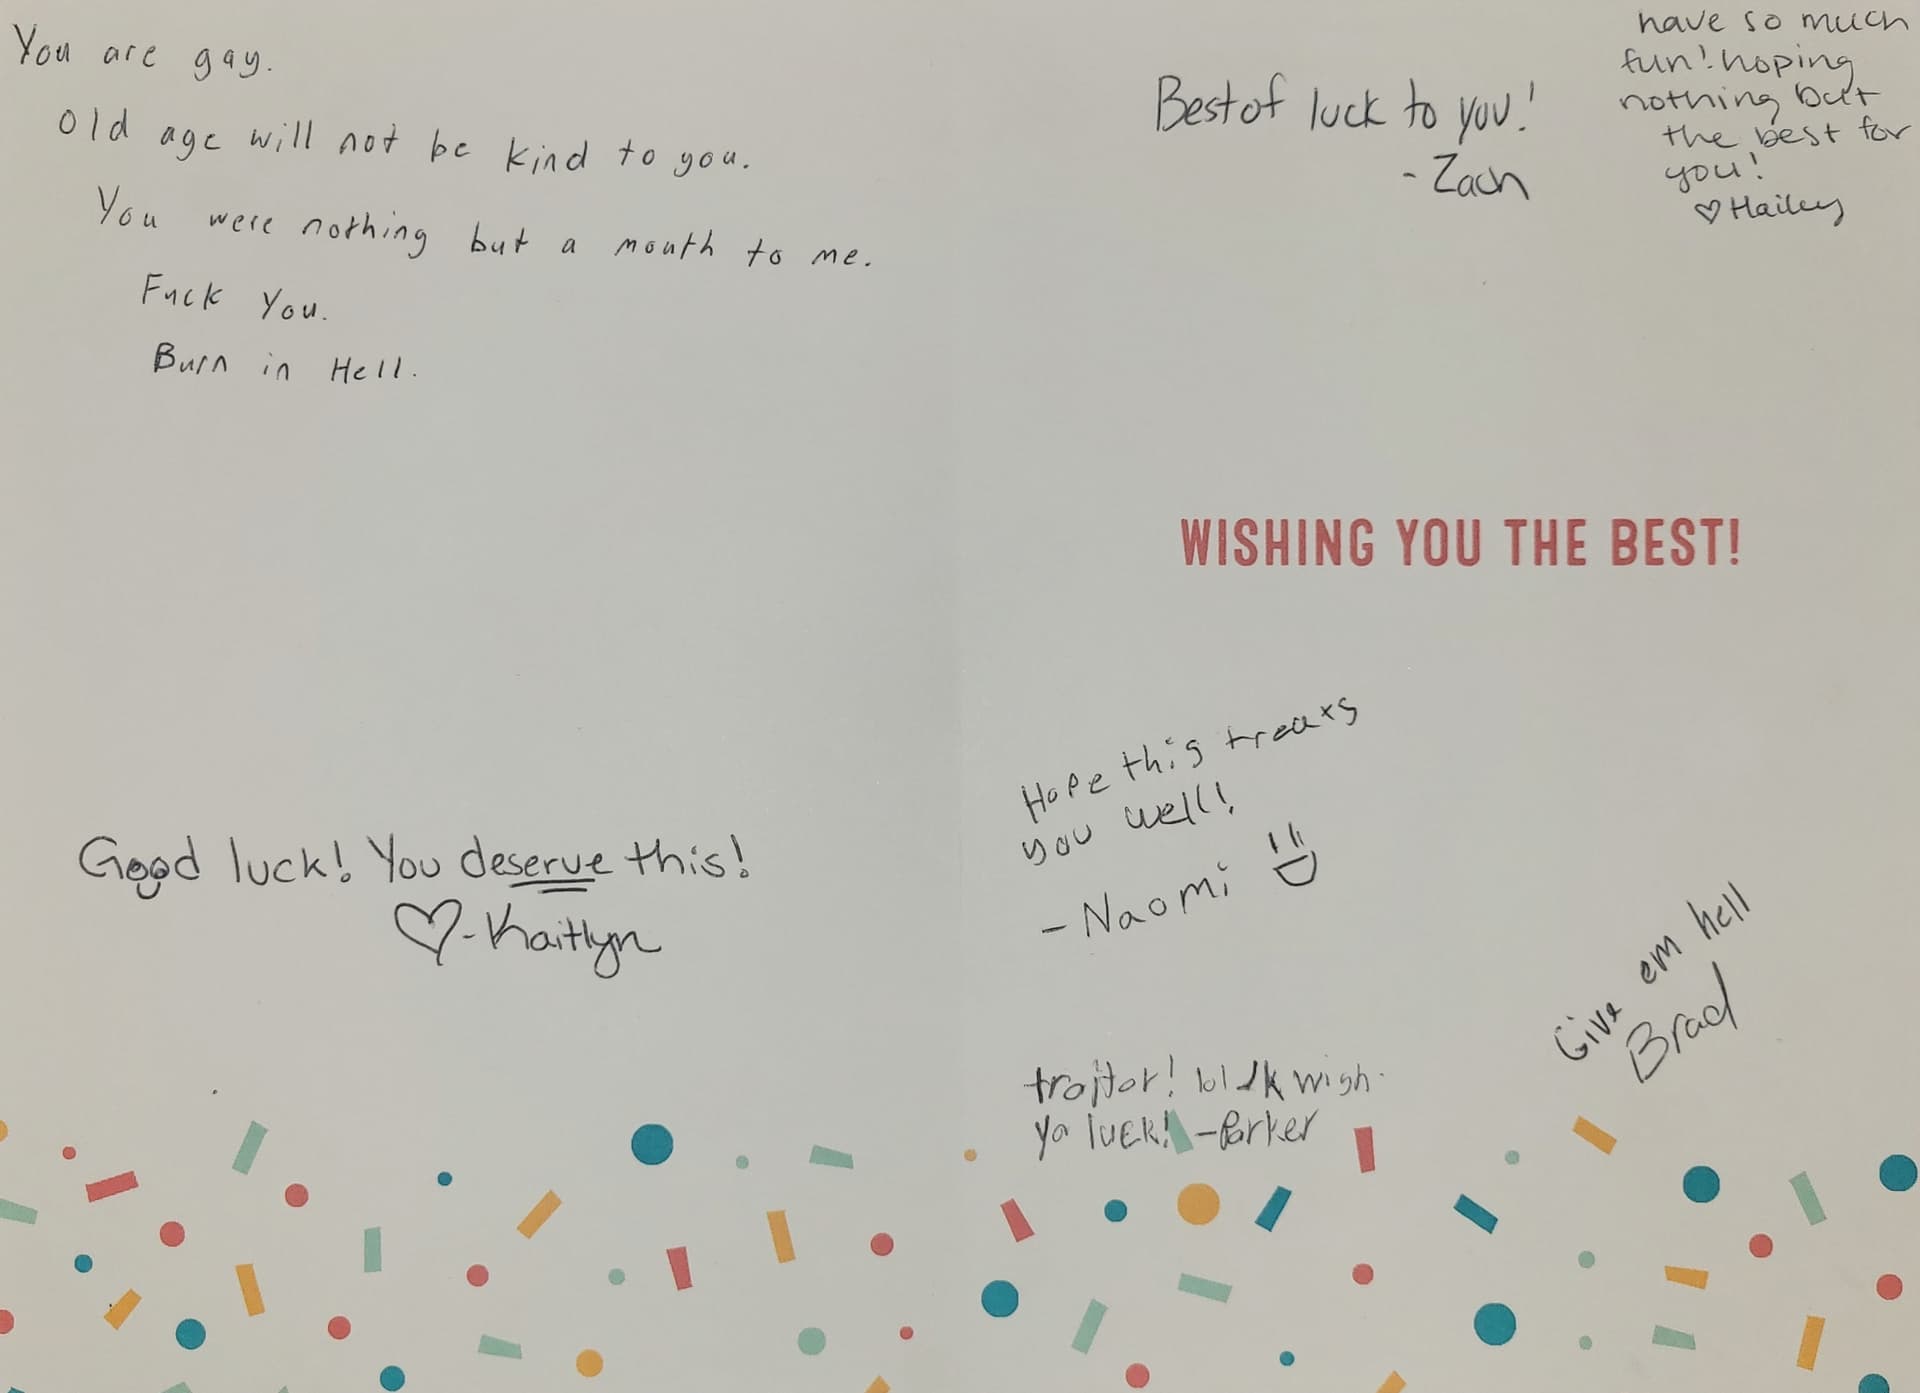 You are gay.
Old age will not be kind to you.
You were nothing but a mouth to me.
Fuck You.
Burn in Hell.
Good luck! You deserve this!
♡-Kaitlyn
Best of luck to you!
- Zach
have so much
fun! hoping
nothing but
the best for
you!
♡ Hailey
WISHING YOU THE BEST!
Hope this treats
you well!
- Naomi
Give em hell
Brad
traitor! lol Jk wish
ya luck! - Parker